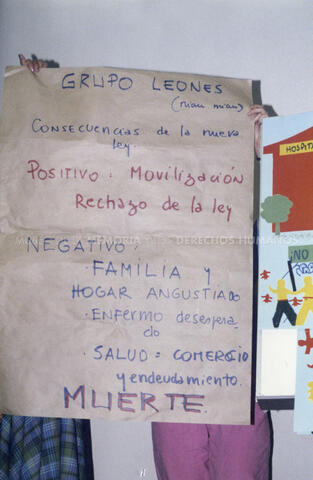 GRUPO LEONES
(miau miau)
CONSECUENCIAS de la nueva
ley.
POSITIVO: MOVILIZACIÓN
RECHAZO de la ley
NEGATIVO:
· FAMILIA Y
HOGAR ANGUSTIADO
· ENFERMO desespera
do
· SALUD = COMERCIO
y endeudamiento.
MUERTE.
HOSPITA
¡NO
MEMORIA
DERECHOS HUMANOS